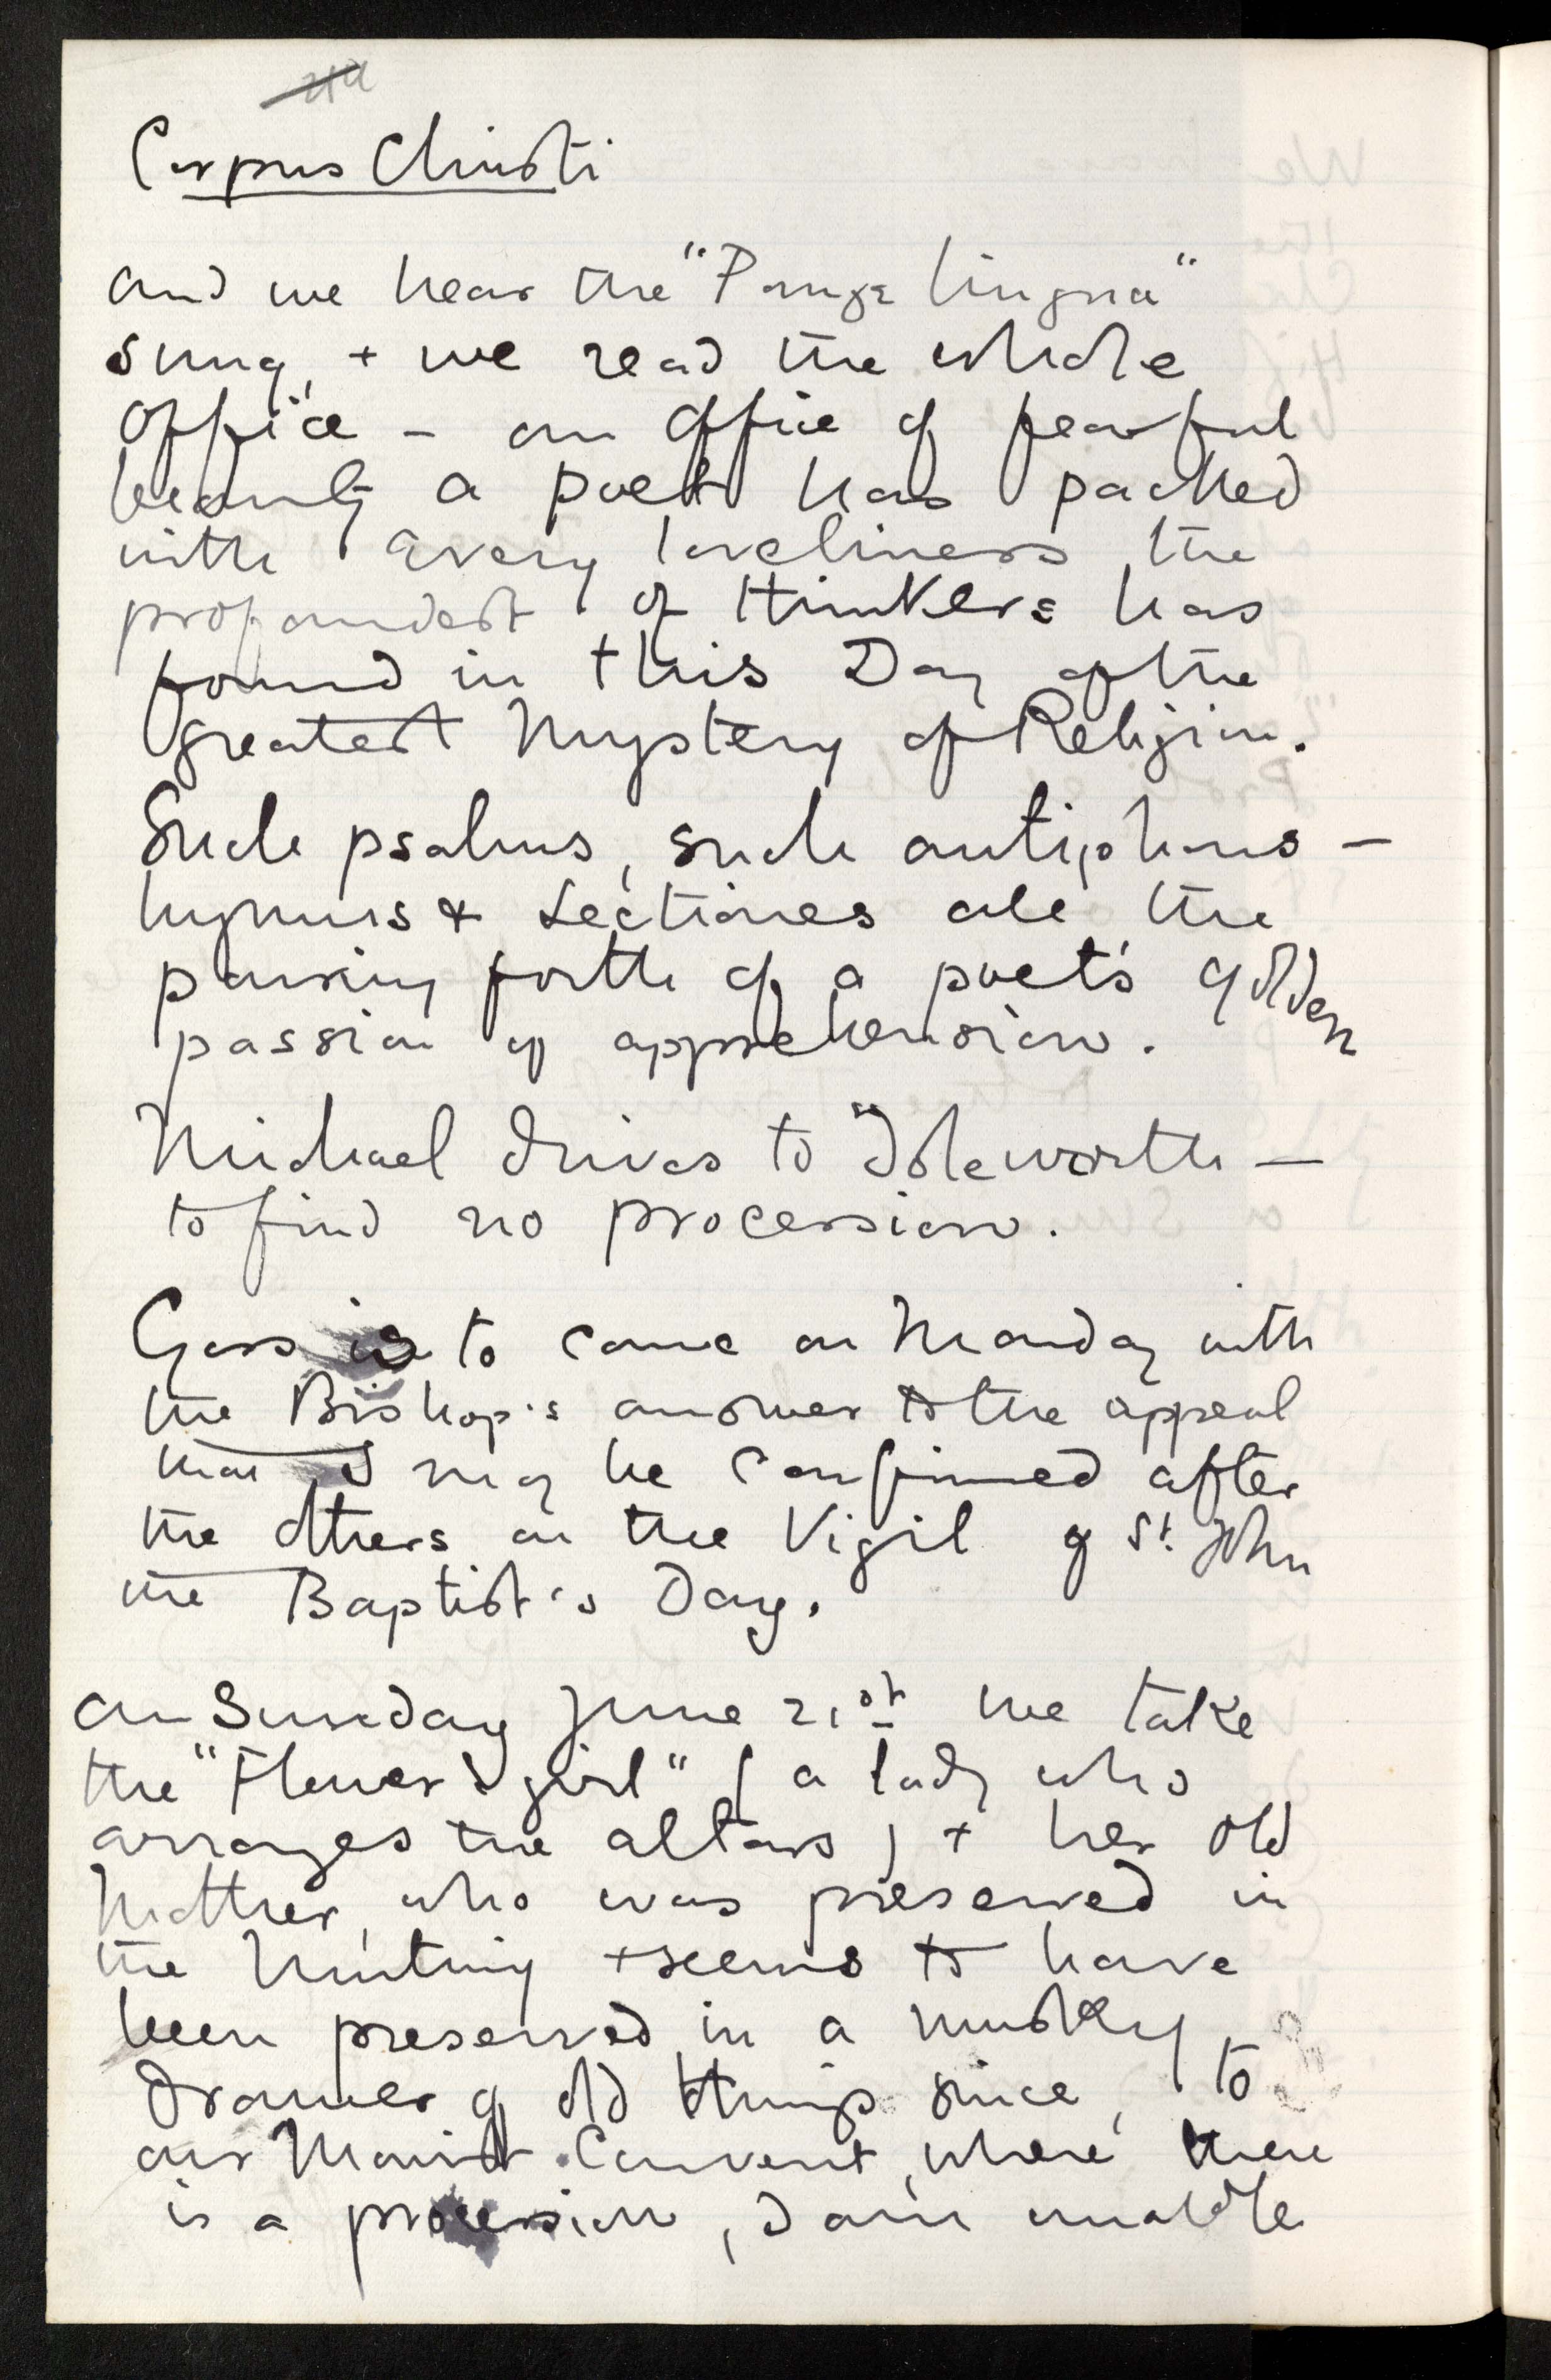 Corpus Christi
and we hear the "Pange lingua"
sung, + we read the whole
Office – an Office of fearful
beauty a poet has packed
with every loveliness the
profoundest of thinkers has
found in this Day of the
greatest Mystery of Religion.
Such psalms, such antiphons –
hymns & Lectiones are the
pouring forth of a poet's golden
passion of apprehension.
Michael drives to Isleworth —
to find no procession.
Goss is to come on Monday with
the Bishop's answer to the appeal
that I may be confirmed after
the others on the Vigil of St. John
the Baptist's Day.
On Sunday June 21st we take
the "Flower girl" (a lady who
arranges the altars) + her old
Mother, who was preserved in
the Mutiny + seems to have
been preserved in a musky
drawer of old things since, to
our Marist Convent, where there
is a procession, I am unable